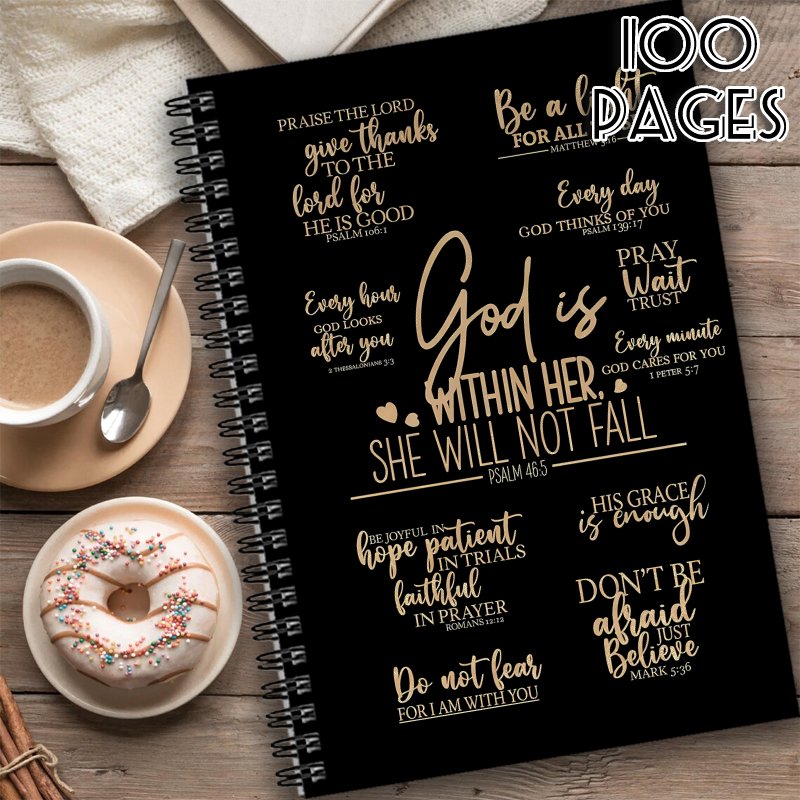 100
PAGES
PRAISE THE LORD
give thanks
TO THE
lord for
HE IS GOOD
PSALM 106:1
Be a light
FOR ALL
MATTHEW 5:16
Every day
GOD THINKS OF YOU
PSALM 139:17
PRAY
Wait
TRUST
Every hour
GOD LOOKS
after you
2 THESSALONIANS 3:3
God is
WITHIN HER,
SHE WILL NOT FALL
PSALM 46:5
Every minute
GOD CARES FOR YOU
1 PETER 5:7
BE JOYFUL IN
hope patient
IN TRIALS
faithful
IN PRAYER
ROMANS 12:12
HIS GRACE
is enough
DON'T BE
afraid
JUST
Believe
MARK 5:36
Do not fear
FOR I AM WITH YOU